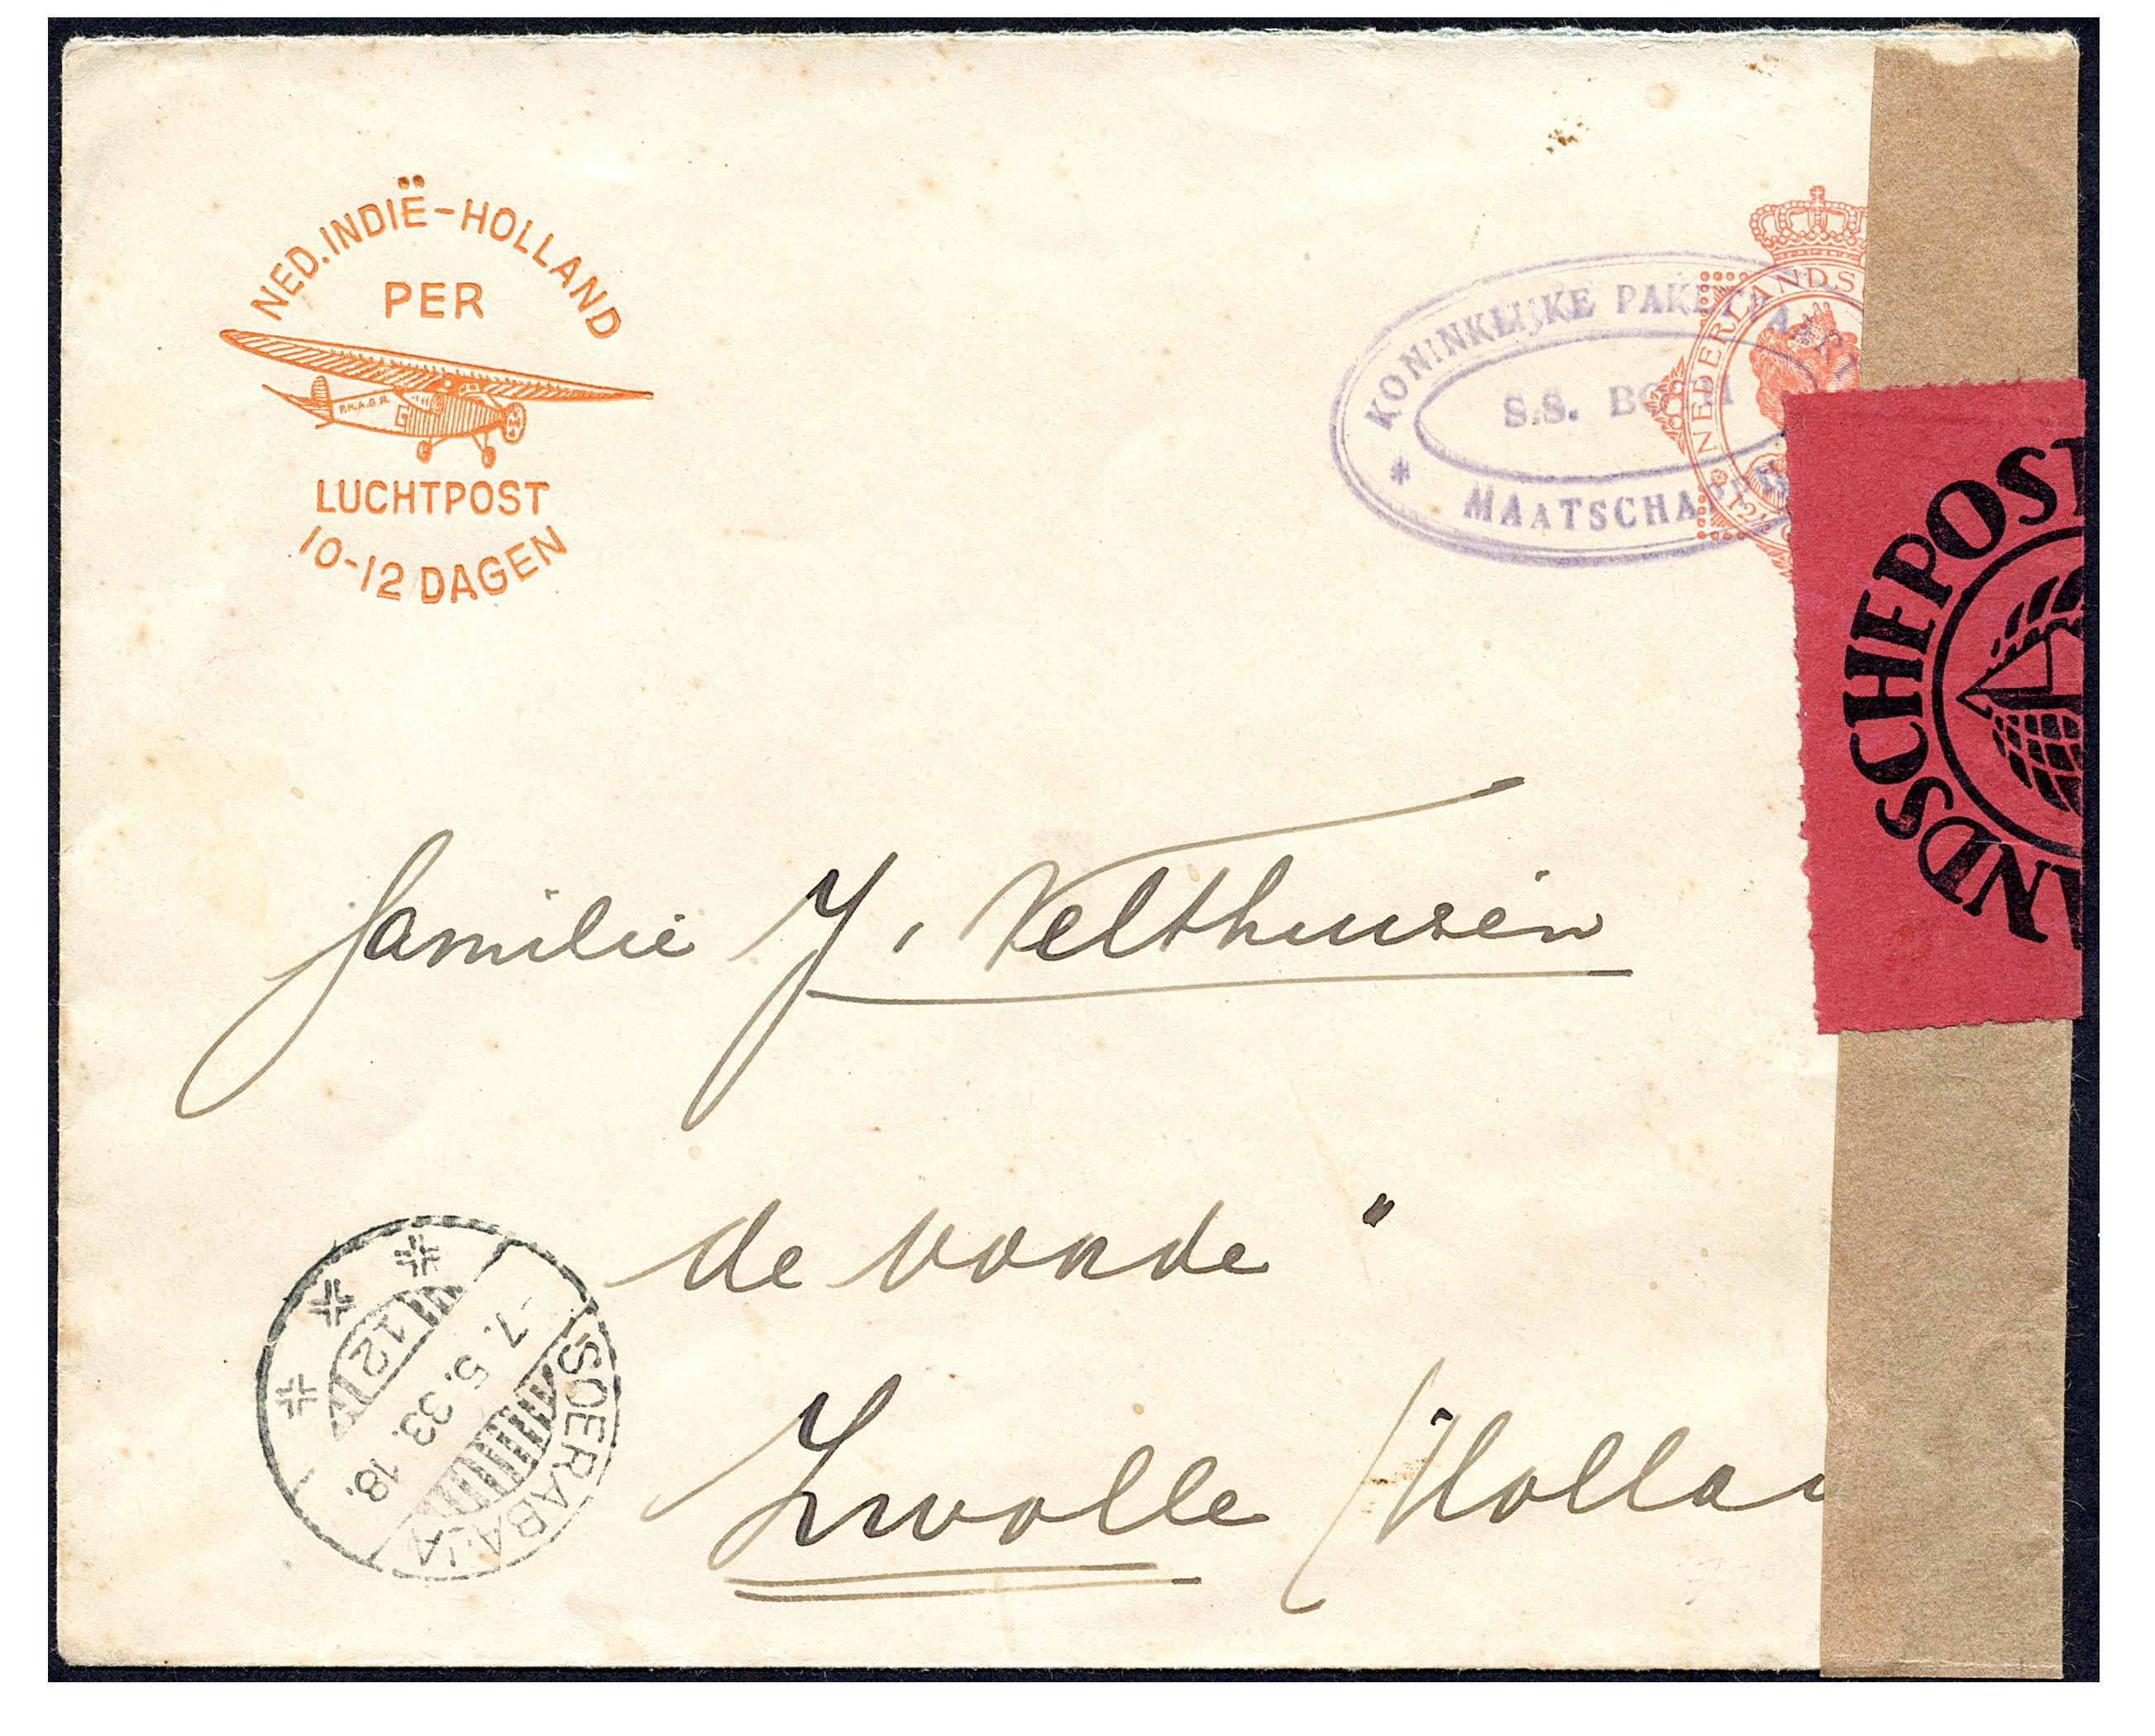 NED. INDIË-HOLLAND
PER
P.H.A.G.R.
LUCHTPOST
10-12 DAGEN
KONINKLIJKE PAKETVAART
S.S.
MAATSCHAPPIJ
NEDERLANDS
NDSCHEPOST
familie J. Velthuisen
de vonde"
Zwolle (Hollan
SOERABAJA
-7.5.33.18.
12